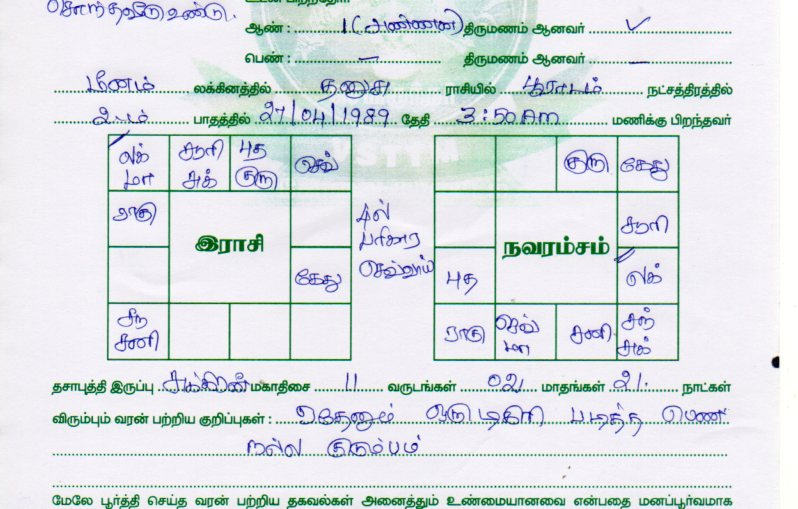 சொந்தவீடு உண்டு.
உடன் பிறந்தோர்
ஆண் : 1 (அண்ணன்) திருமணம் ஆனவர் ✓
பெண் : — திருமணம் ஆனவர் —
மீனம் லக்கினத்தில் தனுசு ராசியில் பூராடம் நட்சத்திரத்தில்
2ம் பாதத்தில் 27/04/1989 தேதி 3:50 Am மணிக்கு பிறந்தவர்
லக் சூரி புத செவ் குரு கேது
மா சுக் குரு
ராகு சூரி
இராசி 4ல் நவரம்சம்
பரிகார
கேது செவ்வாய் புத லக்
சந் ராகு செவ் சனி சந்
சனி மா சுக்
தசாபுத்தி இருப்பு சுக்கிரன் மகாதிசை 11 வருடங்கள் 02 மாதங்கள் 21 நாட்கள்
விரும்பும் வரன் பற்றிய குறிப்புகள் : ஏதேனும் ஒரு டிகிரி படித்த பெண்
நல்ல குடும்பம்
மேலே பூர்த்தி செய்த வரன் பற்றிய தகவல்கள் அனைத்தும் உண்மையானவை என்பதை மனப்பூர்வமாக